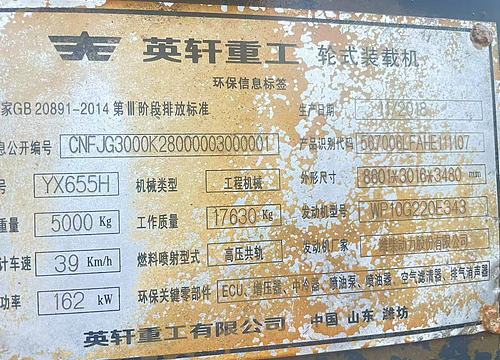 英轩重工 轮式装载机
环保信息标签
家GB 20891-2014 第Ⅲ阶段排放标准 生产日期 11/2018
息公开编号 CNFJG3000K28000003000001 产品识别代码
号 YX655H 机械类型 工程机械 外形尺寸 8601*3016*3480 mm
重量 5000 Kg 工作质量 17630 Kg 发动机型号 WP10G220E343
计车速 39 Km/h 燃料喷射型式 高压共轨 发动机厂家 潍柴动力股份有限公司
功率 162 kW 环保关键零部件 ECU、增压器、中冷器、喷油泵、喷油器、空气滤清器、排气消声器
英轩重工有限公司 中国 山东 潍坊